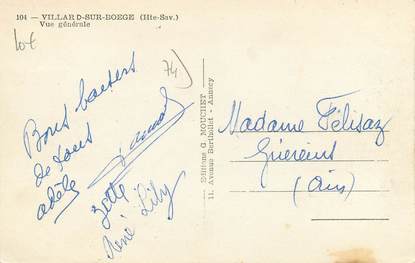 104 — VILLARD-SUR-BOEGE (Hte-Sav.)
Vue générale
10€
74
Bons baisers
de tous
adèle
zette
René Lily
Editions G. MOUCHET
11, Avenue Berthollet - Annecy
Madame Félisaz
Guéreins
(Ain)